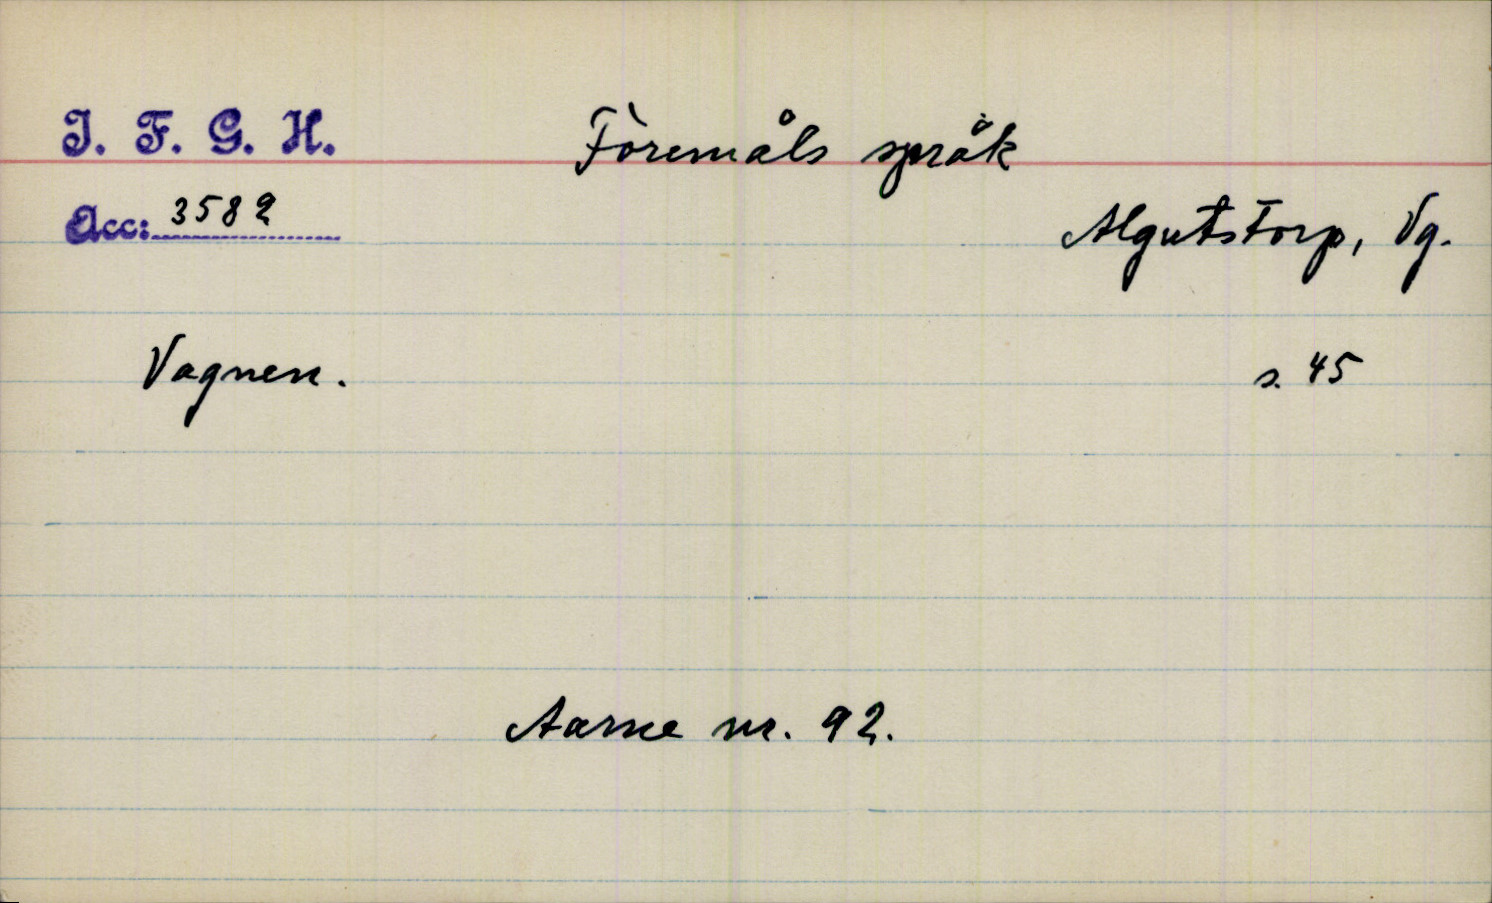 I. F. G. H.
Föremåls språk
Acc: 3582
Algutstorp, Vg.
Vagnen.
s. 45
Aarne nr. 92.